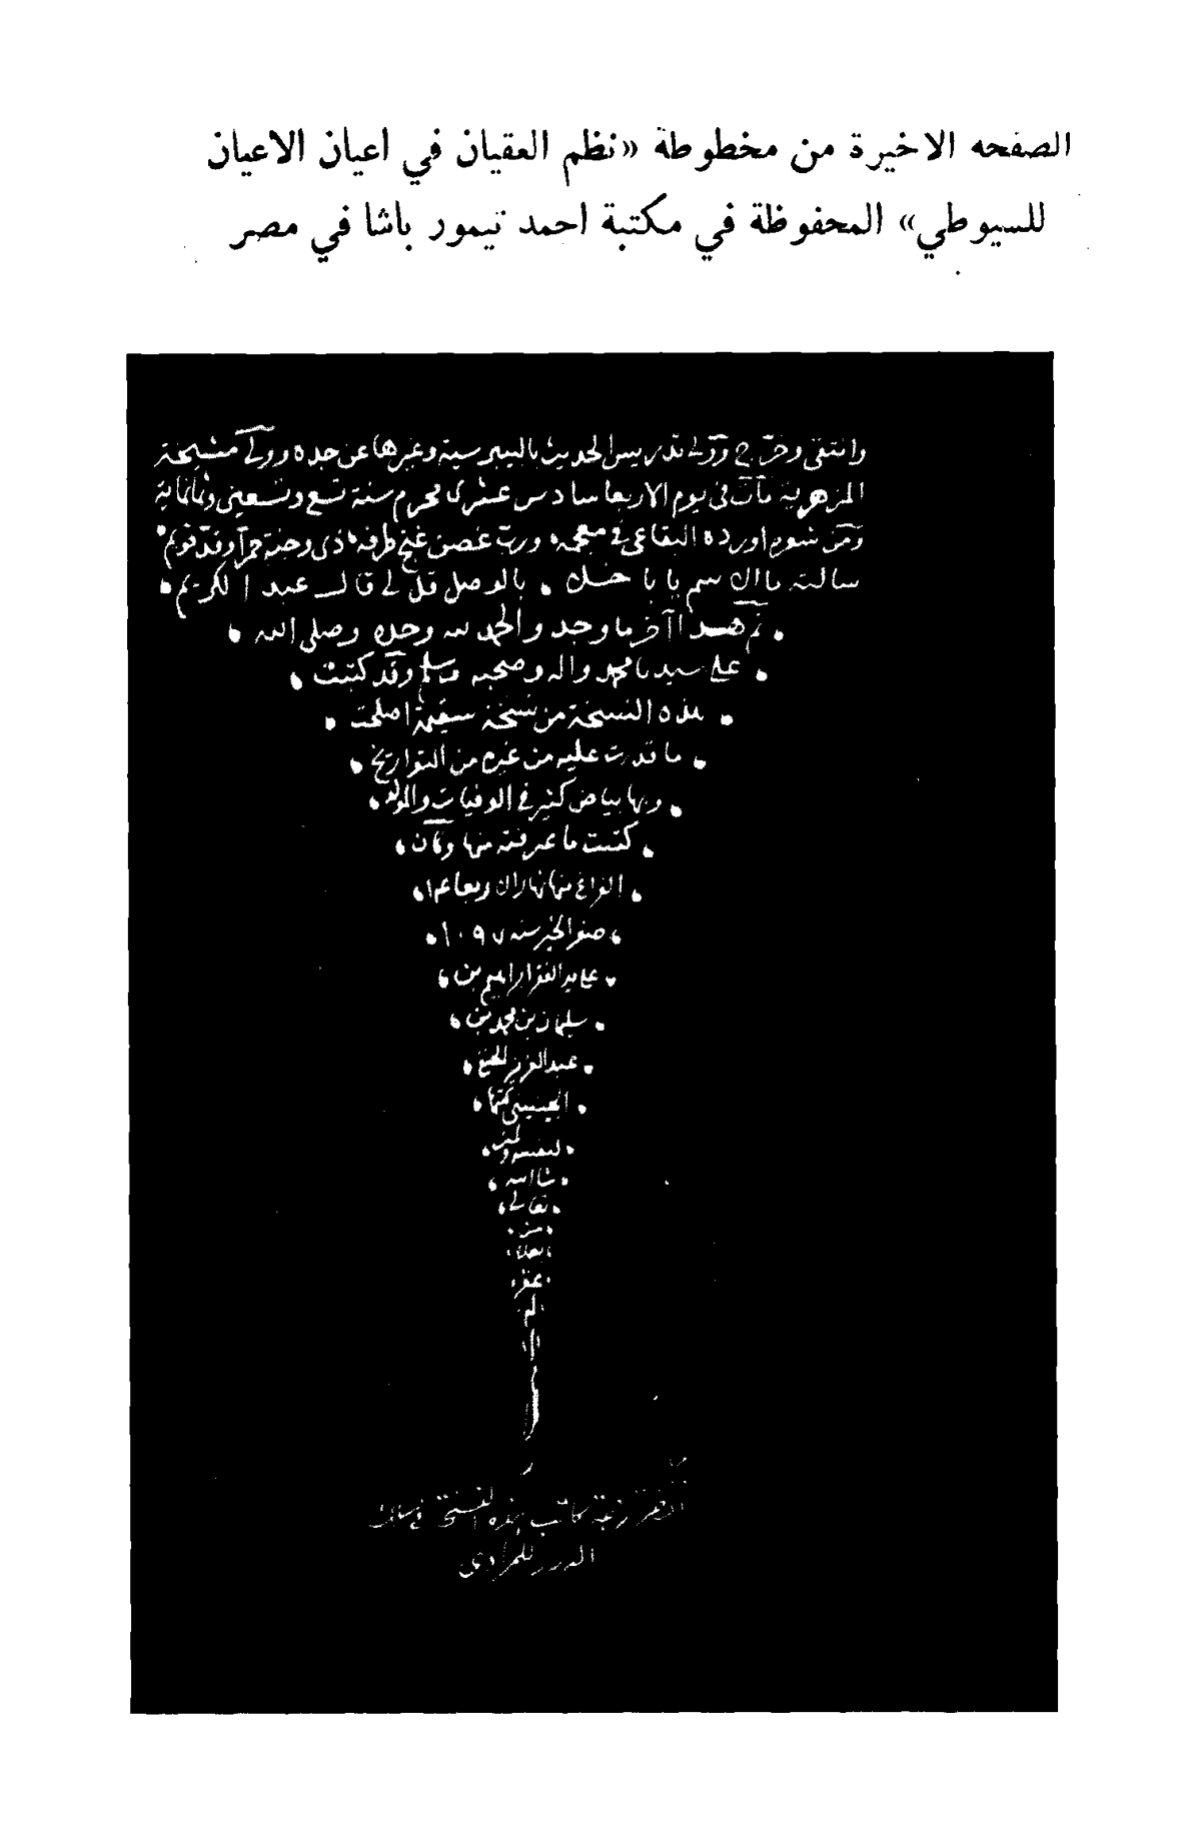 الصفحه الاخيرة من مخطوطة «نظم العقيان في اعيان الاعيان
للسيوطي» المحفوظة في مكتبة احمد تيمور باشا في مصر
وانتقى وخرّج وولى تدريس الحديث بالبيبرسية وغيرها عن جده وولى مشيخة
المزهرية مات فى يوم الاربعا سادس عشرى محرم سنة تسع وتسعين وثمانماية
ومن شعره اورده البقاعى فى معجمه ورب غصن غنج طرفه ذى وجنة حمرآ وقد قويم
سالته ما ال سم يا با خـل بالوصل قل لى قال عبد الكريم
تم هـذا آخر ما وجد والحمد لله وحده وصلى الله
على سيدنا محمد واله وصحبه وسلم وقد كتبت
هذه النسخة من نسخة سقيمة اصلحت
ما قدرت عليه من غيره من التواريخ
وبها بياض كثير فى الوفيات والمولد
كتبت ما عرفته منها وكان
الفراغ منها نهار
صفر الخير سنه ١٠٩٧
على يد الفقير ابراهيم بن
سليمان بن محمد بن
عبد العزيز الحنفى
الجينينى كتبها
لنفسه ولمن
شا الله
تعالى
من
بعده
غفر
الله
ترجمة كاتب هذه النسخة فى سلك
الدرر للمرادى